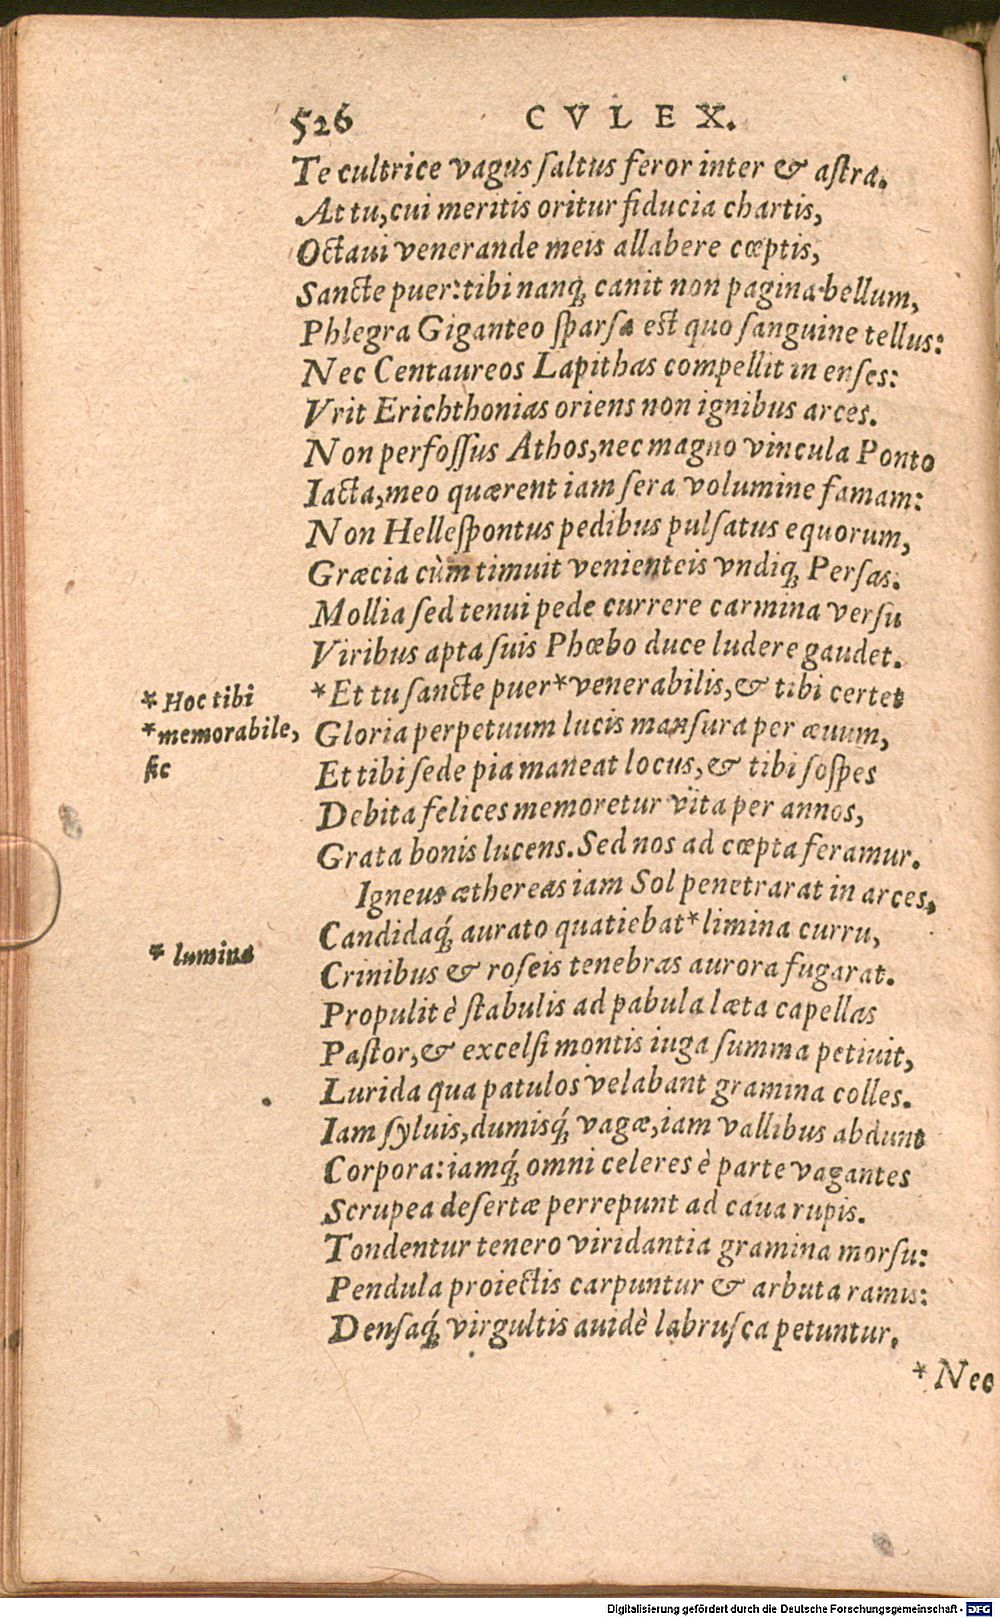 526 CVLEX.
Te cultrice vagus ſaltus feror inter & aſtra.
At tu, cui meritis oritur fiducia chartis,
Octaui venerande meis allabere cœptis,
Sancte puer: tibi nanq; canit non pagina bellum,
Phlegra Giganteo ſparſa est quo ſanguine tellus:
Nec Centaureos Lapithas compellit in enſes:
Vrit Erichthonias oriens non ignibus arces.
Non perfoſſus Athos, nec magno vincula Ponto
Iacta, meo quærent iam ſera volumine famam:
Non Helleſpontus pedibus pulſatus equorum,
Græcia cùm timuit venienteis vndiq; Perſas.
Mollia ſed tenui pede currere carmina verſu
Viribus apta ſuis Phœbo duce ludere gaudet.
* Hoc tibi
*memorabile,
ſic
*Et tu ſancte puer*venerabilis, & tibi certet
Gloria perpetuum lucis manſura per æuum,
Et tibi ſede pia maneat locus, & tibi ſoſpes
Debita felices memoretur vita per annos,
Grata bonis lucens. Sed nos ad cœpta feramur.
Igneus æthereas iam Sol penetrarat in arces,
Candidaq́; aurato quatiebat*limina curru,
* lumina
Crinibus & roſeis tenebras aurora fugarat.
Propulit è ſtabulis ad pabula læta capellas
Paſtor, & excelſi montis iuga ſumma petiuit,
Lurida qua patulos velabant gramina colles.
Iam ſyluis, dumisq́; vagæ, iam vallibus abdunt
Corpora: iamq́; omni celeres è parte vagantes
Scrupea deſertæ perrepunt ad caua rupis.
Tondentur tenero viridantia gramina morſu:
Pendula proiectis carpuntur & arbuta ramis:
Denſaq́; virgultis auidè labruſca petuntur.
* Nec
Digitalisierung gefördert durch die Deutsche Forschungsgemeinschaft - DFG